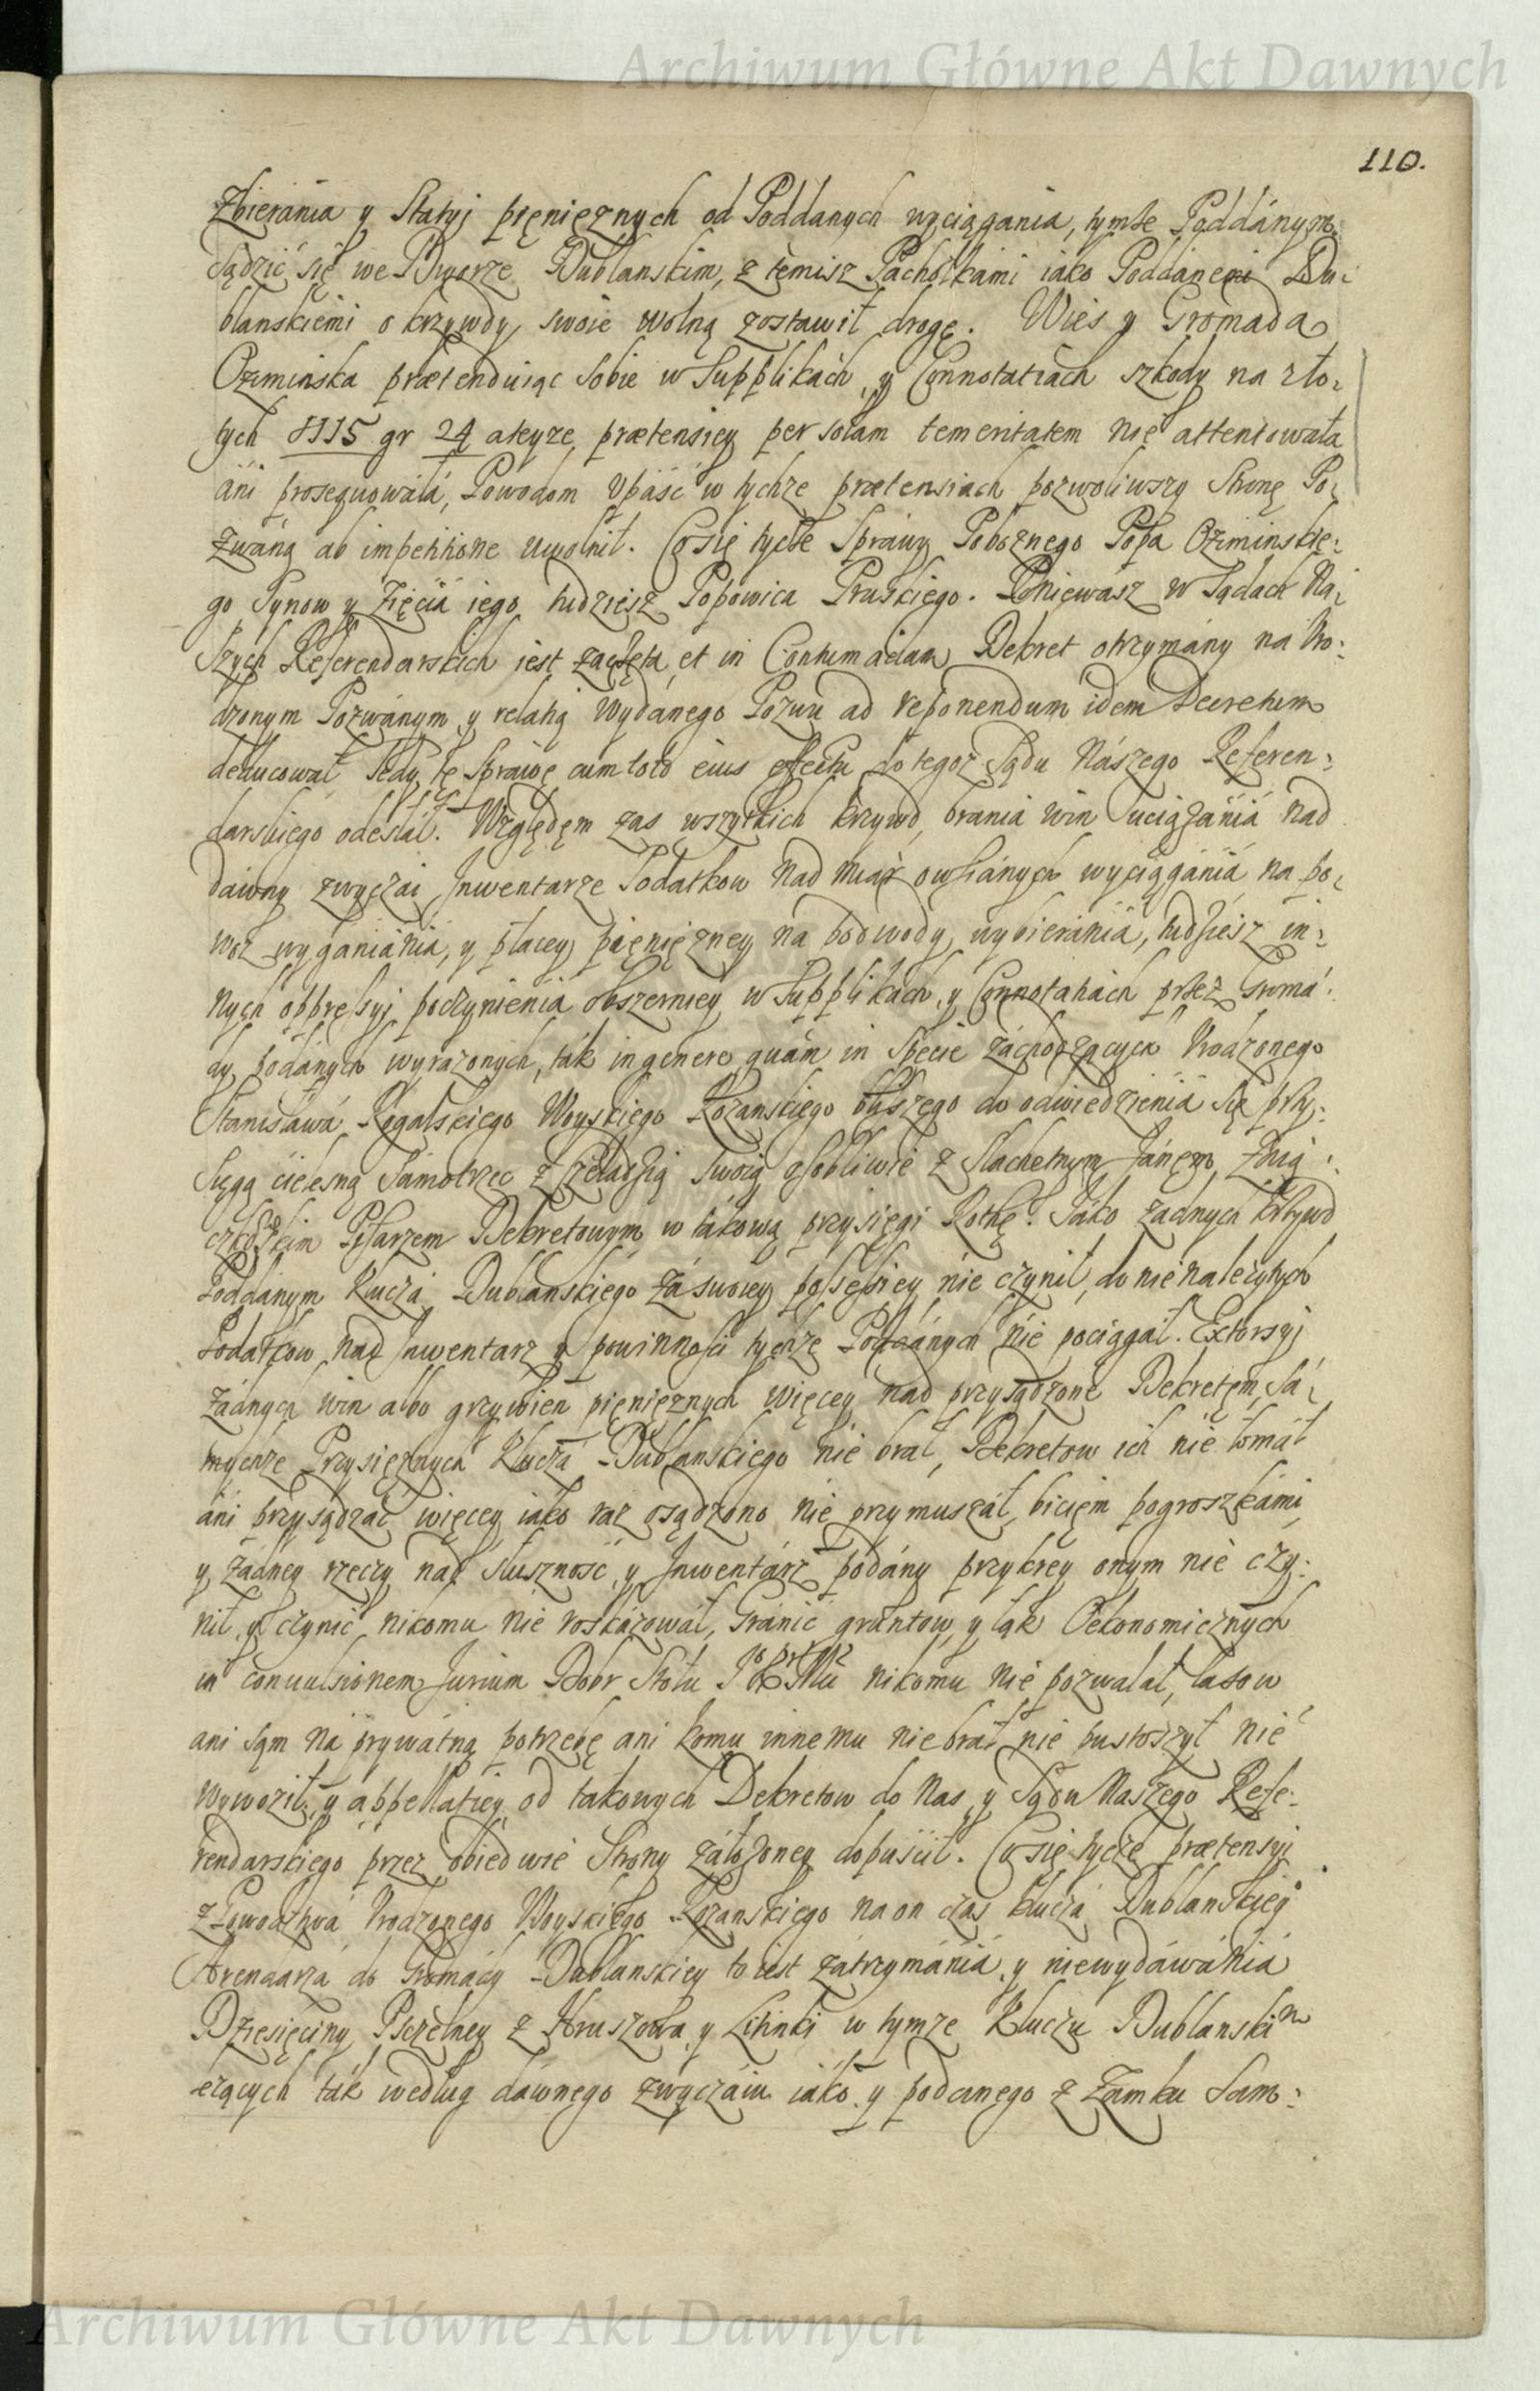 Archiwum Główne Akt Dawnych
110.
Zbierania y Stacyi pięniężnych od Poddanych wyciągania, tymże Poddánym
Sądzić się we Dworze Dublanskim, z temisz Pachołkami iako Poddanemi Du:
blanskiemi o krzywdy swoie wolną zostawił drogę. Wies y Gromada
Oziminska prætenduiąc sobie w Supplikach, y Connotatiach szkody na zło:
tych 8115 gr 24 ateyże prætensiey per solam temeritatem nie attentowała
áni prosequowałá, Powodom Upáść w tychże prætensiach pozwoliwszy Stronę Po:
zwáną ab impetitione uwolnił. Co się tycze Spráwy Pobożnego Popa Oziminskie:
go Synow y Zięciá iego tudziesz Popowica Pruskiego. Ponieważ w Sądach Na:
szych Referendarskich iest zaczęta et in Contumaciam Dekret otrzymány na Uro:
dzonym Pozwánym y relatią wydánego Pozwu ad reponendum idem Decretum
deducował, Tedy tę Sprawę cum toto eius effectu do tegoż Sądu Nászego Referen:
darskiego odesłał. Względem zas wszytkich krzywd, brania win uciążániá nad
dáwny zwyczai Inwentarze Podatkow nad miarę owsiánych wyciągániá na po:
woz wyganiánia, y płacey pięniężney na podwody wybierániá, tudziesz in:
nych oppressyi poczynieniá obszerniey w Supplikách, y Connotatiach przez Gromá:
dy podánych wyrażonych, ták in genere quám in Specie záchodzących Urodzonego
Stanisławá Rogalskiego Woyskiego Rożanskiego bliszego do odwiedzieniá się przy:
sięgą cielesną Sámotrzec z Czeladzią swoią osobliwie z Slachetnym Jánem
Pisarzem Dekretowym w tákową przysięgi Rotę. Jáko żadnych krzywd
Poddanym Kluczá Dublanskiego zá swoiey possessiey nie czynił, do nienależytych
Podatkow nad Inwentarz y powinnosci tychże Poddánych nie pociągáł. Extorsyi
żádnych win albo grzywien pieniężnych więcey nad przysądzone Dekretem, Sá:
mychże Przysiężnych Kluczá Dublanskiego nie brał, Dekretow ich nie łomáł
áni przysądzáć więcey iáko raz osądzono nie przymuszáł biciem pogroszkámi,
y żádney rzeczy nad słuszność y Inwentárz podány przykrey onym nie czy:
nił y czynić nikomu nie roskázowáł, Gránic gruntow y łąk Oekonomicznych
in convulsionem Jurium Dobr Stołu nikomu nie pozwalał, lasow
ani sąm ná prywátną potrzebę ani komu innemu nie brał nie pustoszył nie
wywoził, y appellatiey od takowych Dekretow do Nas y Sądu Naszego Refe:
rendarskiego przez obiedwie Strony záłożoney dopuścił. Co się tycze prætensyi
z Powodztwá Urodzonego Woyskiego Rożanskiego na on czás Kluczá Dublanskieg°
Arendarzá do Gromády Dublanskiey to iest zátrzymániá y niewydáwániá
Dziesięciny Pszczelney z Hruszowa y Litinki w tymże Kluczu Dublanskim
leżących ták według dáwnego zwyczáiu iáko y podanego z Zamku Sam:
Archiwum Główne Akt Dawnych